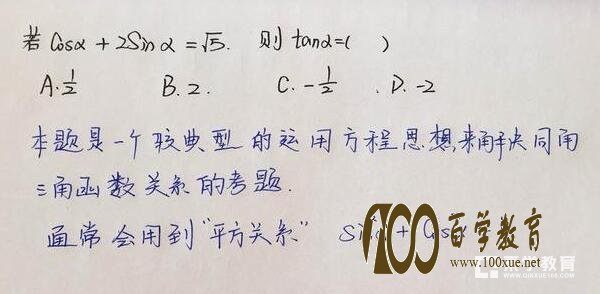 若 Cosα + 2Sinα = √5. 则 tanα=( )
A. 1/2 B. 2. C. -1/2 . D. -2
本题是一个较典型的运用方程思想来解决同角
三角函数关系的考题.
通常会用到“平方关系” Sin²α + Cos
100百学教育
www.100xue.net
教育
WWW.QIXUE100.COM